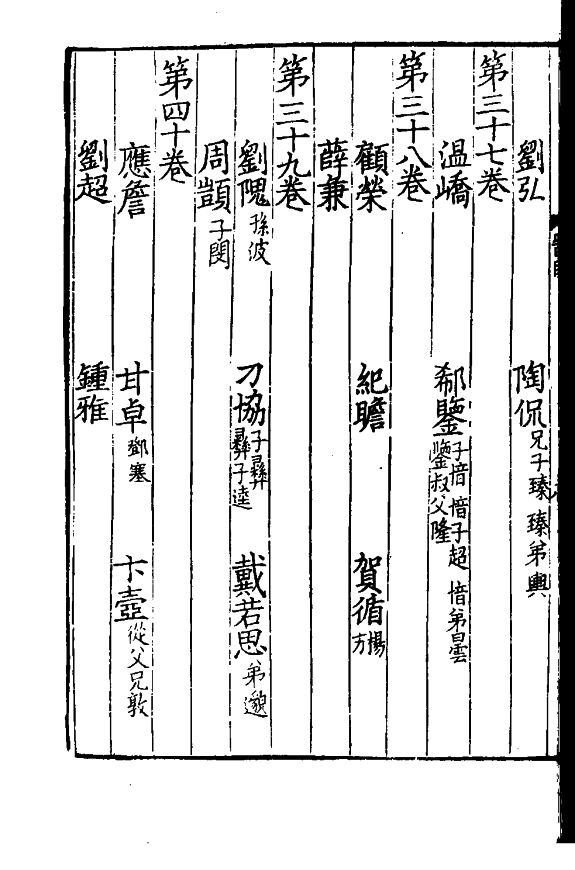 劉弘 陶侃 兄子臻 臻弟輿
第三十七卷
温嶠 郗鑒 子愔 愔子超 愔弟曇 鑒叔父隆
第三十八卷
顧榮 紀瞻 賀循 楊方
薛兼
第三十九卷
劉隗 孫波 刁協 子彝 彝子逵 戴若思 弟邈
周顗 子閔
第四十卷
應詹 甘卓 鄧騫 卞壼 從父兄敦
劉超 鍾雅